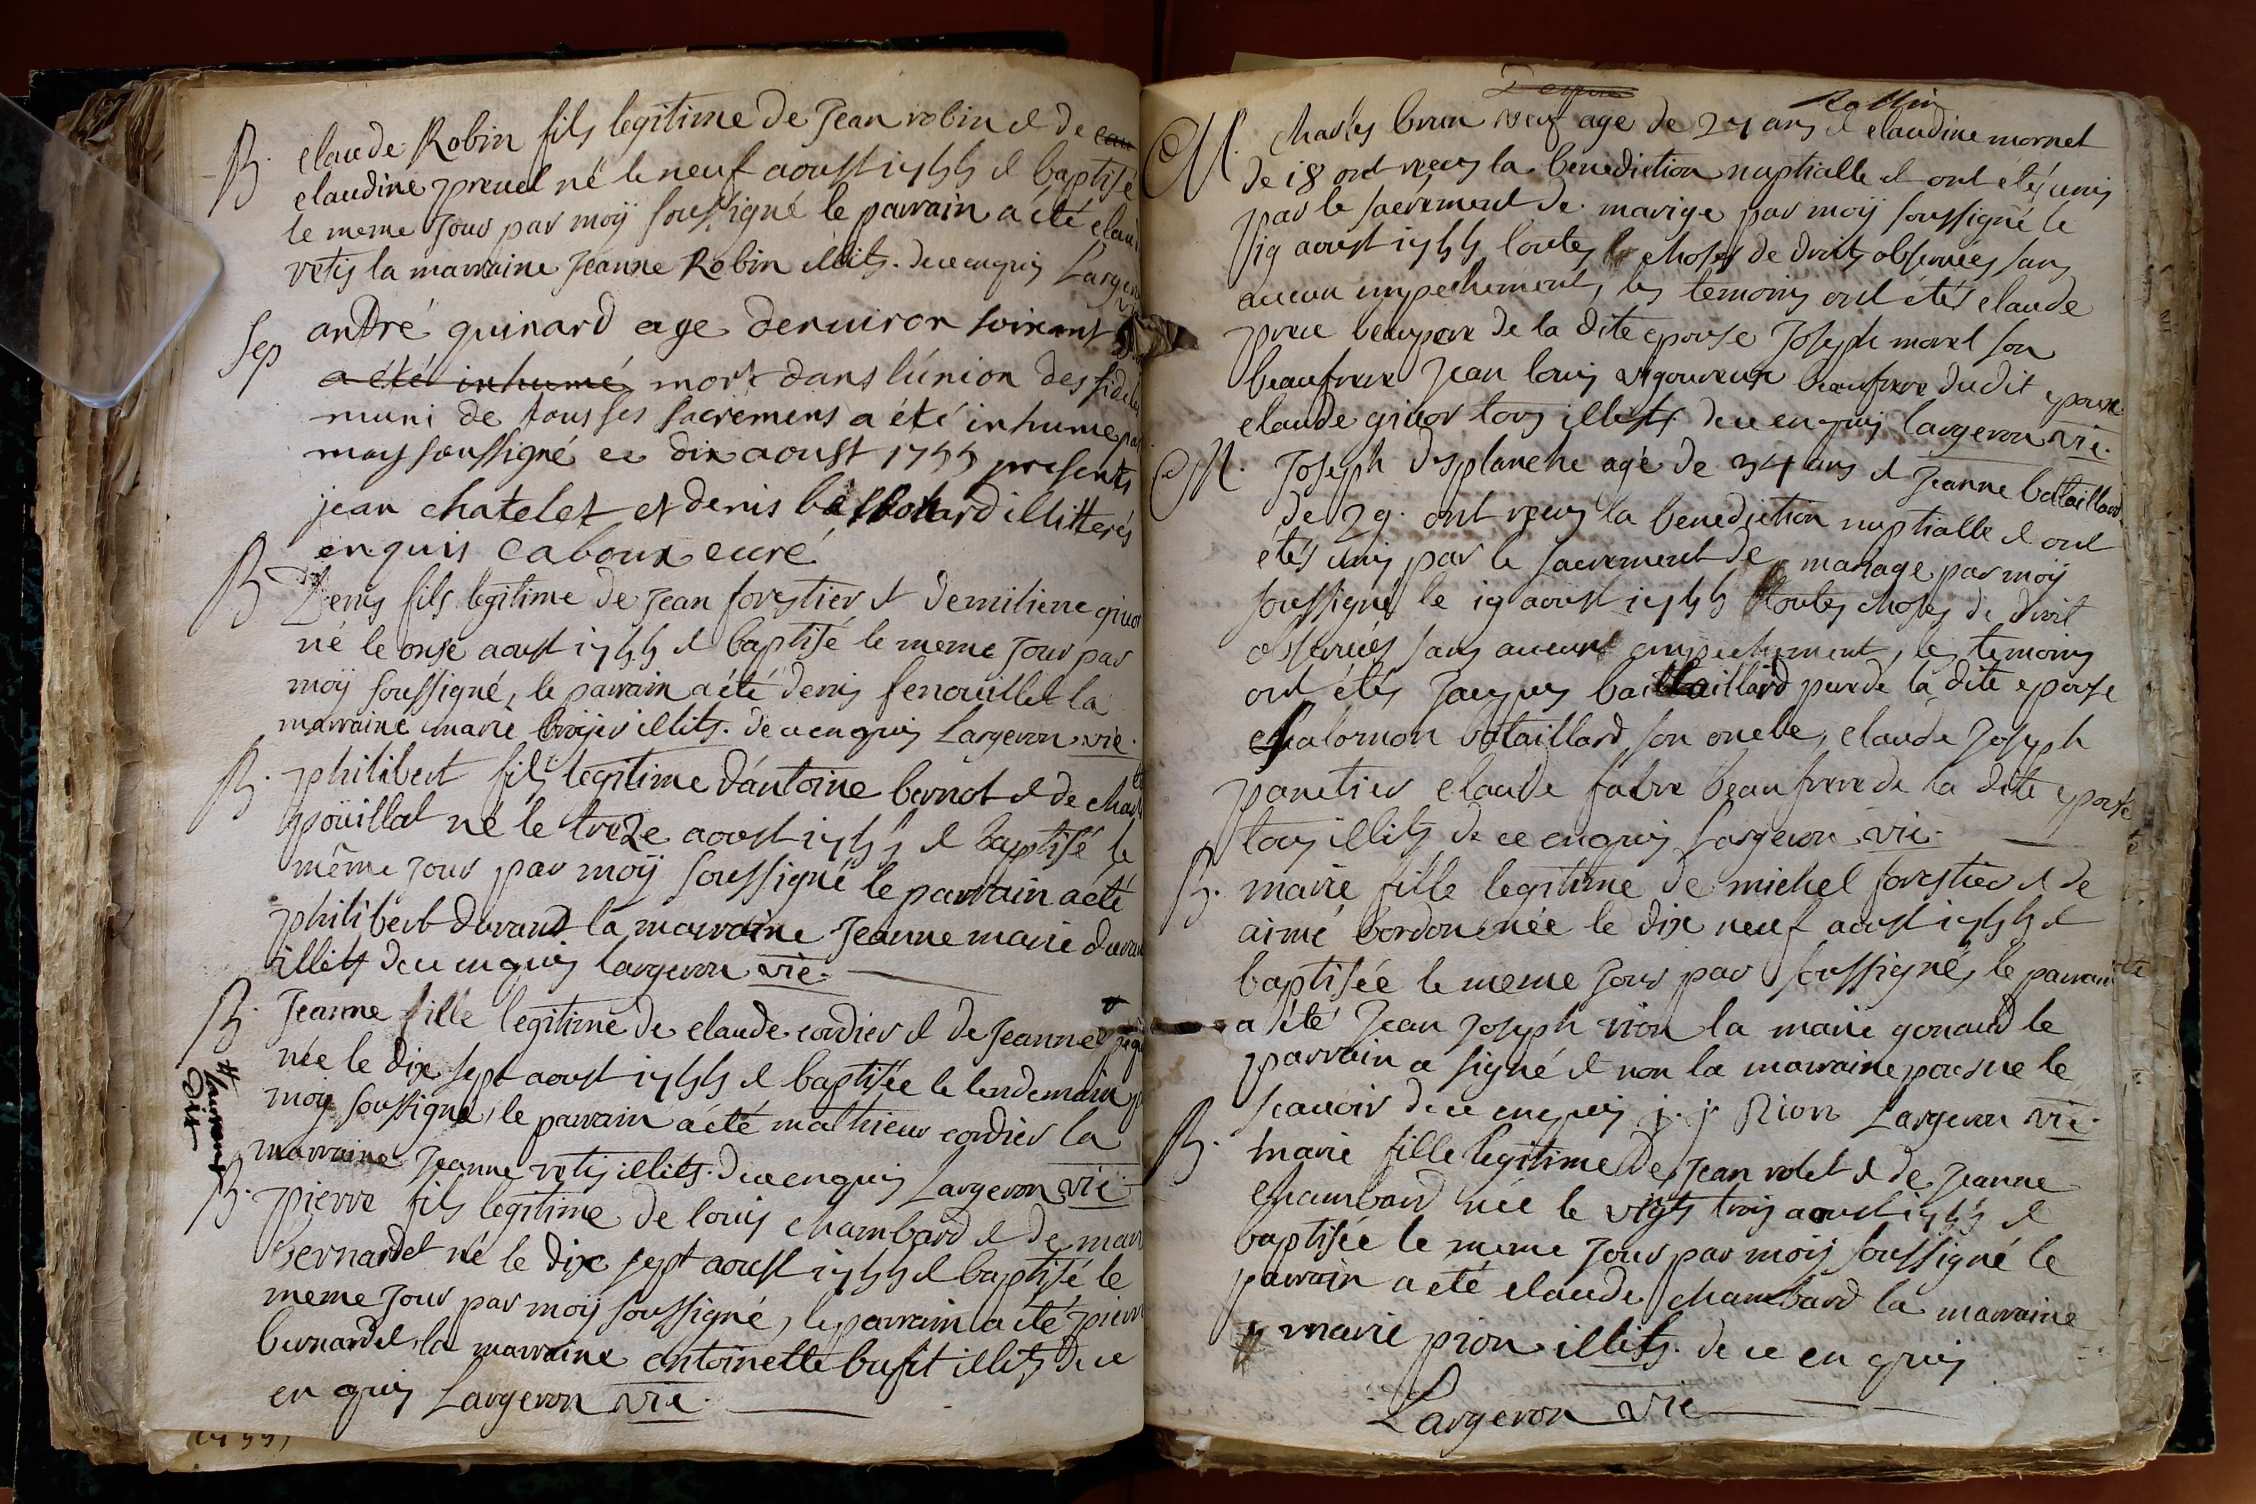 B. claude Robin fils legitime de Jean robin et de
claudine preuel né le neuf aoust 1755 et baptisé
le meme Jour par moÿ soussigné le parrain a été
vetis la marraine Jeanne Robin illits. de ce enquis Largeron
Sep andré guinard age denuiron soixant
a été inhumé mort dans l'union des fideles
muni de tous ses sacremens a été inhumé par
moy soussigné ce dix aoust 1755 presents
jean chatelet et denis illitterés
enquis caboux curé
B Denis fils legitime de Jean forestier et demiliene givor
né le onse aoust 1755 et baptisé le meme Jour par
moÿ soussigné, le parrain a été denis fenouillet la
marraine marie broÿer illits. de ce enquis Largeron vic.
B. philibert fils legitime d'antoine bernot et de
poüillat né le treze aoust 1755 et baptisé le
même Jour par moÿ soussigné le parrain a été
philibert durand la marraine Jeanne marie durand
illits de ce enquis largeron vic.
B. Jeanne fille legitime de claude cordier et de Jeanne
née le dix sept aoust 1755 et baptisée le lendemain
moy soussigné, le parrain a été mathieu cordier la
marraine Jeanne vetis illits. de ce enquis Largeron vic
B. pierre fils legitime de louis chambard et de
bernardet né le dix sept aoust 1755 et baptisé le
meme Jour par moÿ soussigné, le parrain a été pierre
bernardet la marraine antoinette bufit illits de ce
enquis Largeron vic.
Rollin
M. Charles brun veuf age de 27 ans et claudine mornet
de 18 ont reçus la benediction nuptialle et ont étés unis
par le sacrement de marige par moÿ soussigné le
19 aoust 1755 toutes choses de droits observées sans
aucun impechement, les temoins ont étés claude
preu beaupere de la dite epouse Joseph morel son
beaufrere Jean louis vigoureux beaufrere dudit epoux
claude givor tous illits de ce enquis largeron vic.
M. Joseph desplanche agé de 34 ans et Jeanne bataillard
de 29. ont reçus la benediction nuptialle et ont
étés unis par le sacrement de mariage par moÿ
soussigné le 19 aoust 1755 toutes choses de droit
observées sans aucun empechement, les temoins
ont étés Jacques bataillard pere de la dite epouse
Salomon bataillard son oncle, claude Joseph
panetier claude favre beaufrere de la dite epouse
tous illits de ce enquis Largeron vic.
B. marie fille legitime de michel forestier et de
aimé bordon née le dix neuf aoust 1755 et
baptisée le meme Jour par soussigné, le parrain
a été Jean Joseph rion la marie gonaud le
parrain a signé et non la marraine pour ne le
scauoir de ce enquis j. j. Rion Largeron vic.
B. marie fille legitime de Jean volet et de Jeanne
chambard née le vigts trois aoust 1755 et
baptisée le meme Jour par moÿ soussigné le
parrain a eté claude chambard la marraine
marie pion illits. de ce enquis
Largeron vic